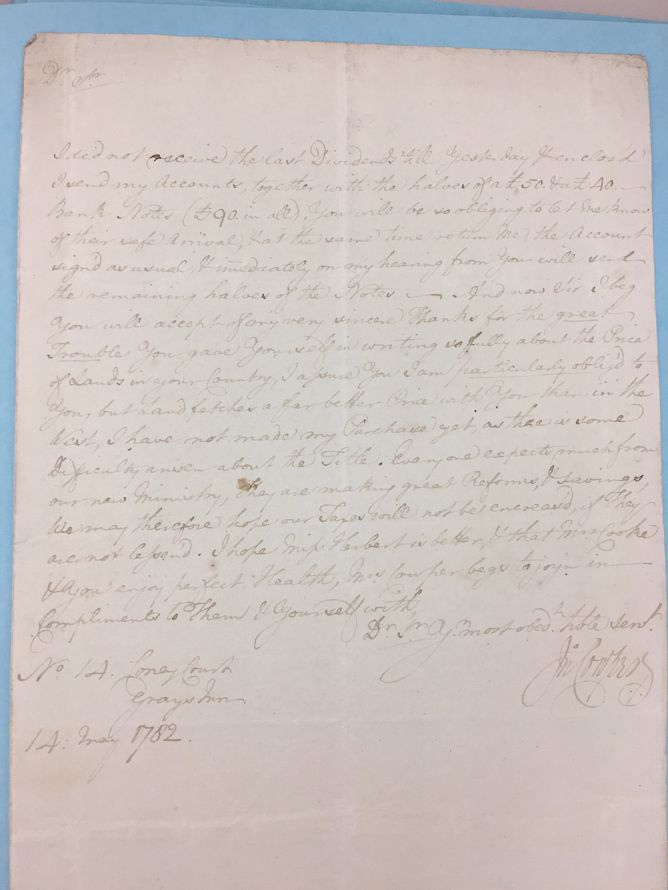 Dr Sir
I did not receive the last Dividends till Yesterday & enclos'd
I send my Accounts, together with the halves of a £50. & a £40.
Bank Notes (£90. in all). You will be so obliging to let me know
of their safe Arrival, & at the same time return Me the Account
sign'd as usual, & imediately on my hearing from You will send
the remaining halves of the Notes — And now Sir I beg
You will accept of my very sincere Thanks for the great
Trouble You gave Yourself in writing so fully about the Price
of Lands in your Country, I assure You I am particularly oblig'd to
You, but Land fetches a far better Price with You than in the
West, I have not made my Purchase yet, as there is some
Difficulty arisen about the Title. Every one expects much from
our new Ministry, They are making great Reforms, & Savings,
We may therefore hope our Taxes will not be encreas'd, if They
are not lessend. I hope Miss Herbert is better, & that Mrs Cooke
& You enjoy perfect Health, Mrs Cowper begs to joyn in
Compliments to Them & Yourself with
Dr Sr Yr most obedt hble servt
Jno Cowper
No 14. Coney Court
Grays Inn
14: May 1782.